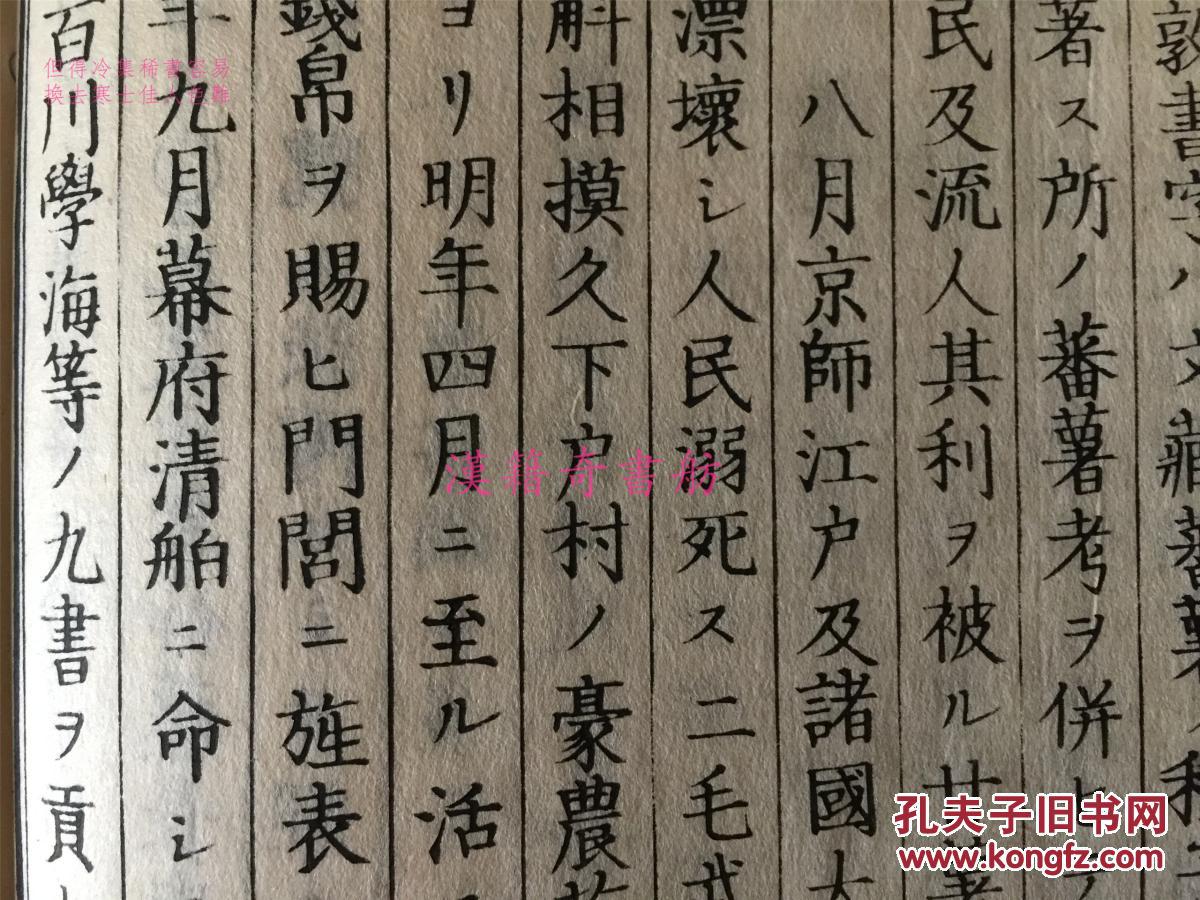 敦書字ハ文藏蕃薯
著ス所ノ蕃薯考ヲ併ヒ
民及流人其利ヲ被ル廿
八月京師江戸及諸國大
漂壞シ人民溺死ス二毛武
斛相摸久下戸村ノ豪農
ヨリ明年四月ニ至ル活
錢帛ヲ賜ヒ門閭ニ旌表
年九月幕府清舶ニ命シ
百川學海等ノ九書ヲ貢
但得冷集稀書容易
換去寒士佳人
漢籍奇書舫
孔夫子旧书网
www.kongfz.com